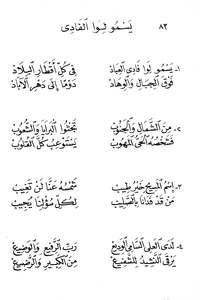 ٨٣ يَسْمُو لِوَا الْفَادِي
١- يَسْمُو لِوَا فَادِي الْعِبَادْ فِي كُلِّ أَقْطَارِ الْبِلَادْ
فَوْقَ الْجِبَالِ وَالْوِهَادْ دَوْمًا إِلَى دَهْرِ الْآبَادْ
٢- مِنَ الشَّمَالِ وَالْجَنُوبْ تَجْثُو الْبَرَايَا وَالشُّعُوبْ
فَشَخْصُهُ الْحَيُّ الْمَهُوبْ يَسْتَوْعِبُ كُلَّ الْقُلُوبْ
٣- إِسْمُ الْمَسِيحِ خَيْرُ طِيبْ شَمْسُهُ عَنَّا لَنْ تَغِيبْ
مَنْ قَدْ فَدَانَا بِالصَّلِيبْ لِكُلِّ سُؤْلِنَا يُجِيبْ
٤- لَدَى الْعَلِي السَّامِي الْوَدِيعْ رَبِّ الرَّفِيعِ وَالْوَضِيعْ
يَرْقَى النَّشِيدُ لِلشَّفِيعْ مِنَ الْكَبِيرِ وَالرَّضِيعْ